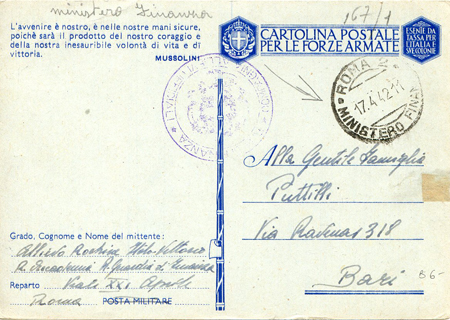 ministero Finanza
167/1
L'avvenire è nostro, è nelle nostre mani sicure,
poichè sarà il prodotto del nostro coraggio e
della nostra inesauribile volontà di vita e di
vittoria.
MUSSOLINI
CARTOLINA POSTALE
PER LE FORZE ARMATE
ESENTE DA
TASSA PER
L'ITALIA E
SUE COLONIE
ROMA
17.4.42.11
MINISTERO FINAN
Alla Gentile Famiglia
Puttilli
Via 318
Bari
86-
Grado, Cognome e Nome del mittente:
Allievo
R. Accademia R. Guardia di Finanza
Reparto Viale XXI Aprile
Roma POSTA MILITARE